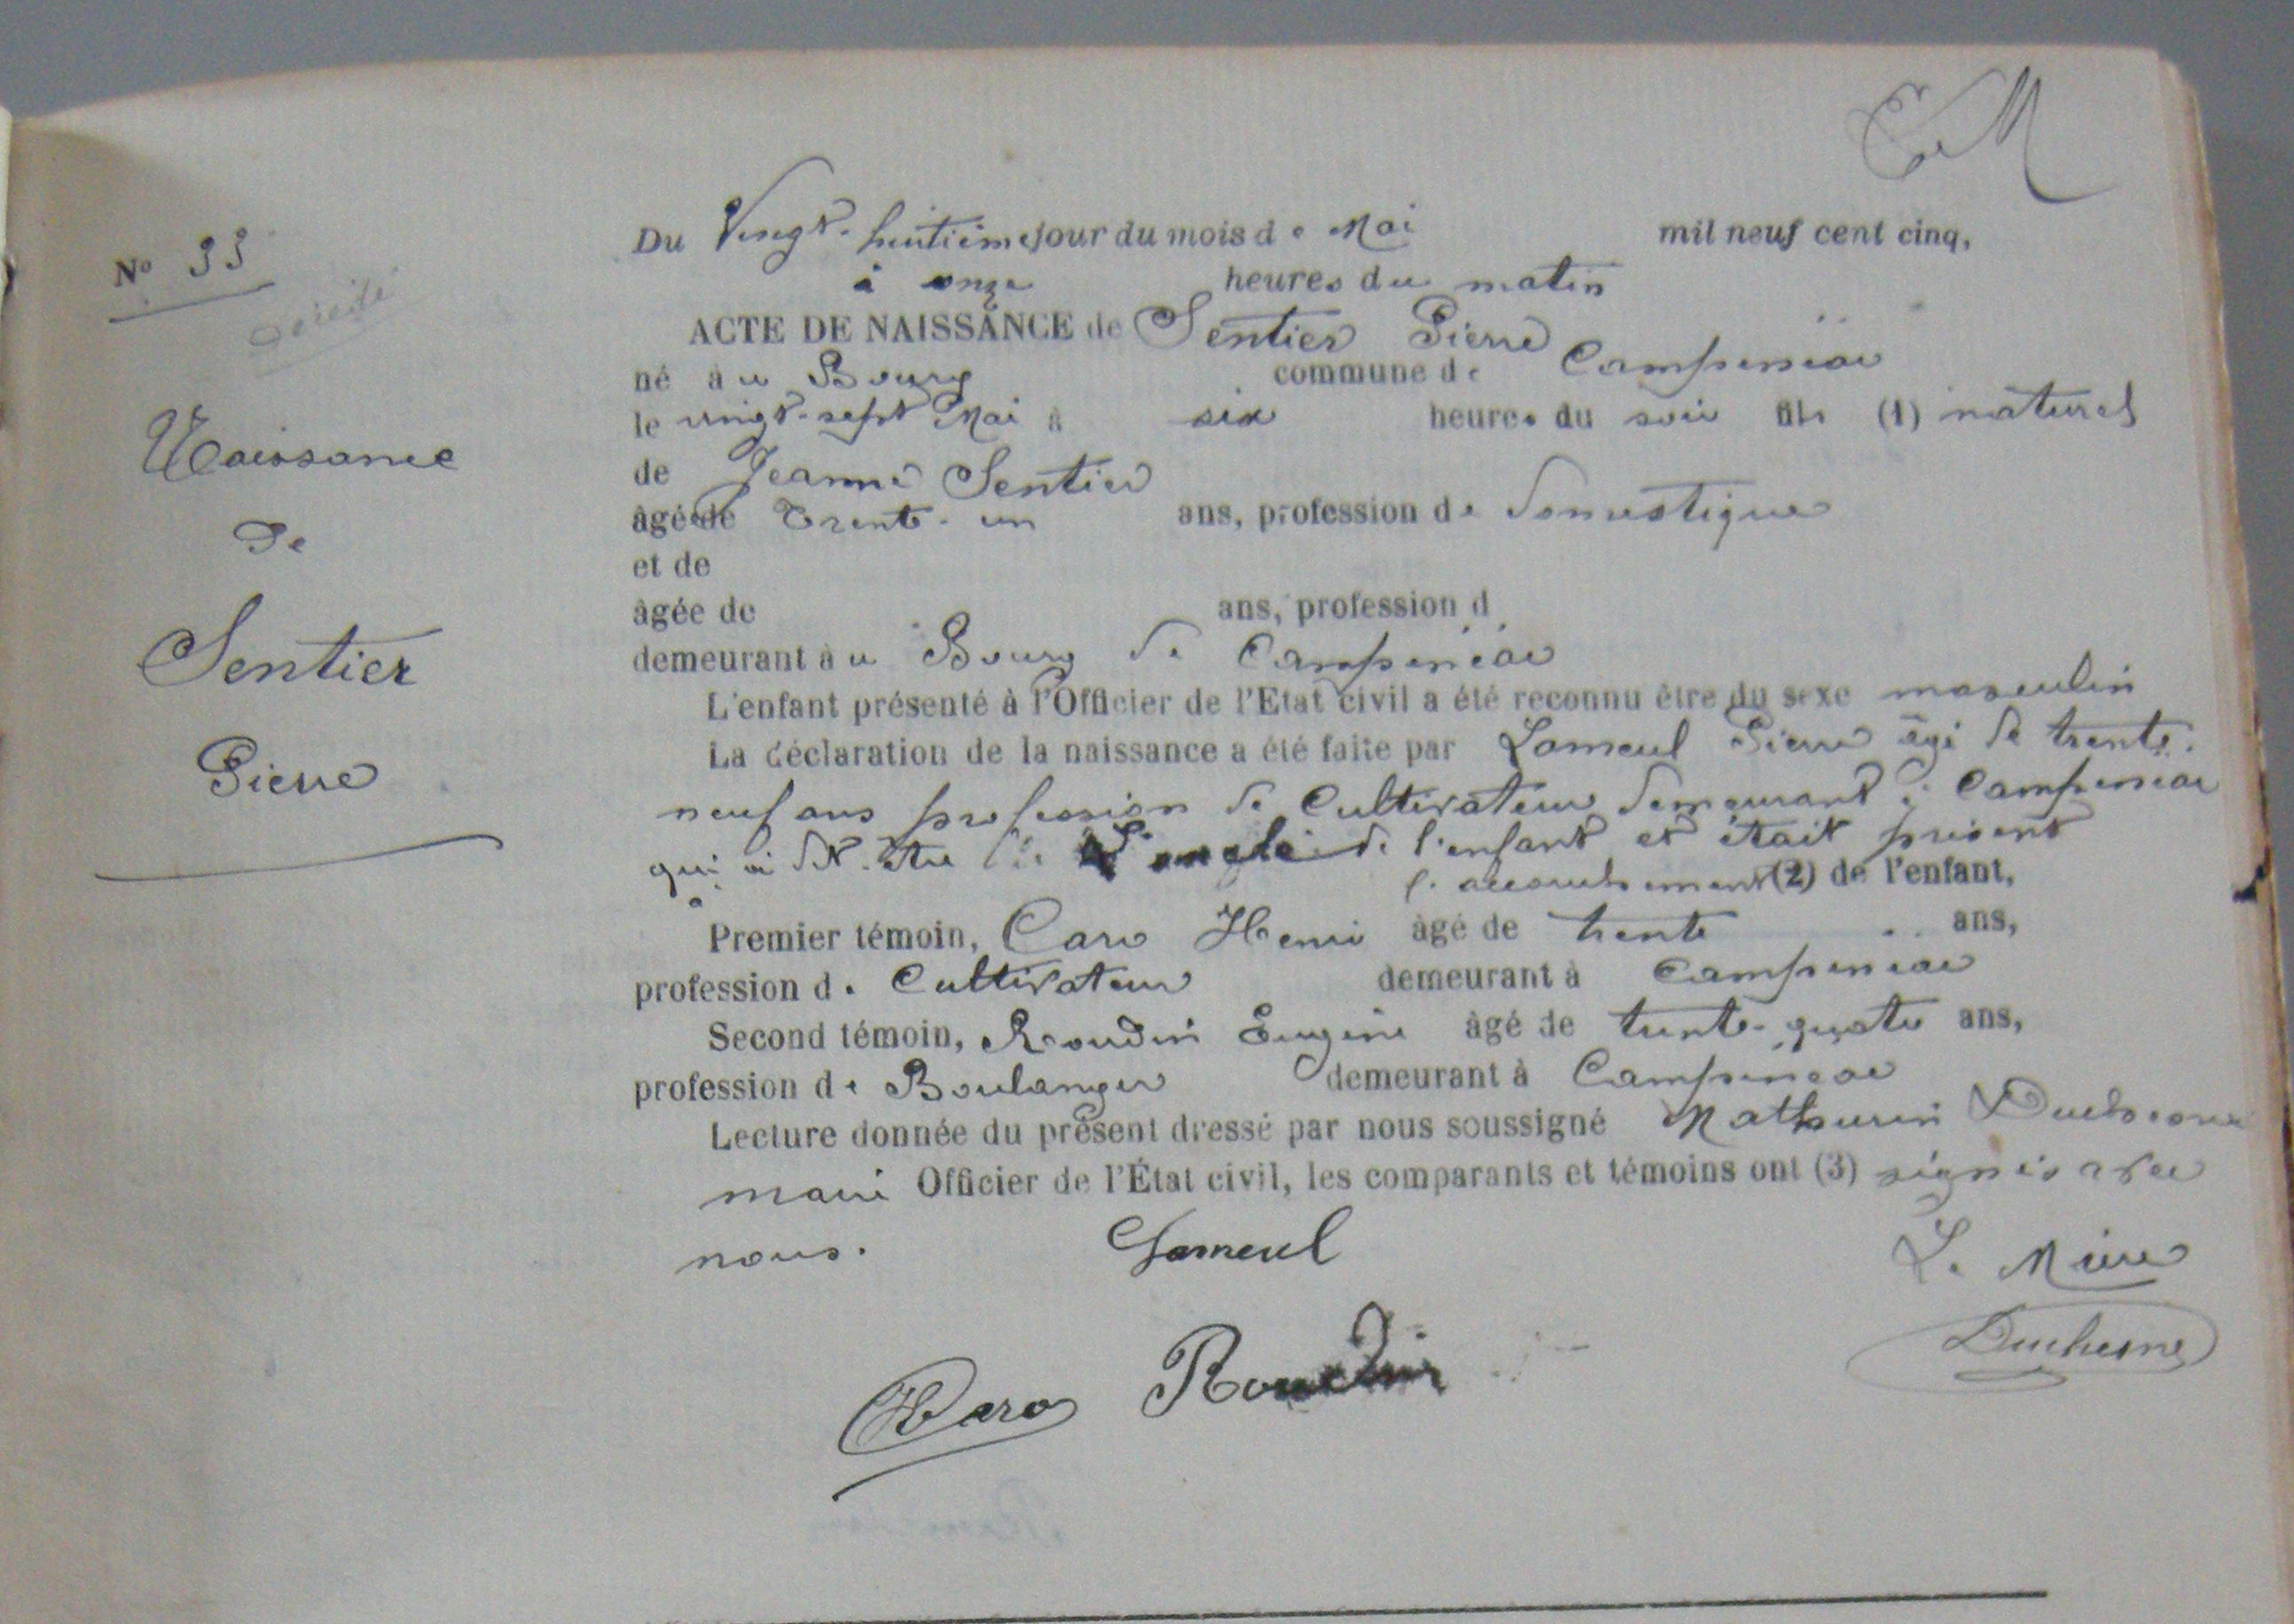 N° 33
décédé
Naissance
de
Sentier
Pierre
Du Vingt-huitième jour du mois de Mai mil neuf cent cinq,
à onze heures du matin
ACTE DE NAISSANCE de Sentier Pierre
né au Bourg commune de Campénéac
le vingt-sept Mai à six heures du soir fils (1) naturel
de Jeanne Sentier
âgée de Trente-un ans, profession de domestique
et de
âgée de ans, profession d
demeurant au Bourg de Campénéac
L'enfant présenté à l'Officier de l'Etat civil a été reconnu être du sexe masculin
La déclaration de la naissance a été faite par Lameul Pierre âgé de trente-
neuf ans profession de Cultivateur demeurant à Campénéac
qui a dit être l'oncle de l'enfant et était présent
à l'accouchement (2) de l'enfant,
Premier témoin, Caro Henri âgé de trente ans,
profession de Cultivateur demeurant à Campénéac
Second témoin, Roudin Eugène âgé de trente-quatre ans,
profession de Boulanger demeurant à Campénéac
Lecture donnée du présent dressé par nous soussigné Mathurin Duchesne
maire Officier de l'État civil, les comparants et témoins ont (3) signés avec
nous. Lameul Le Maire
Duchesne
HCaro Roudin